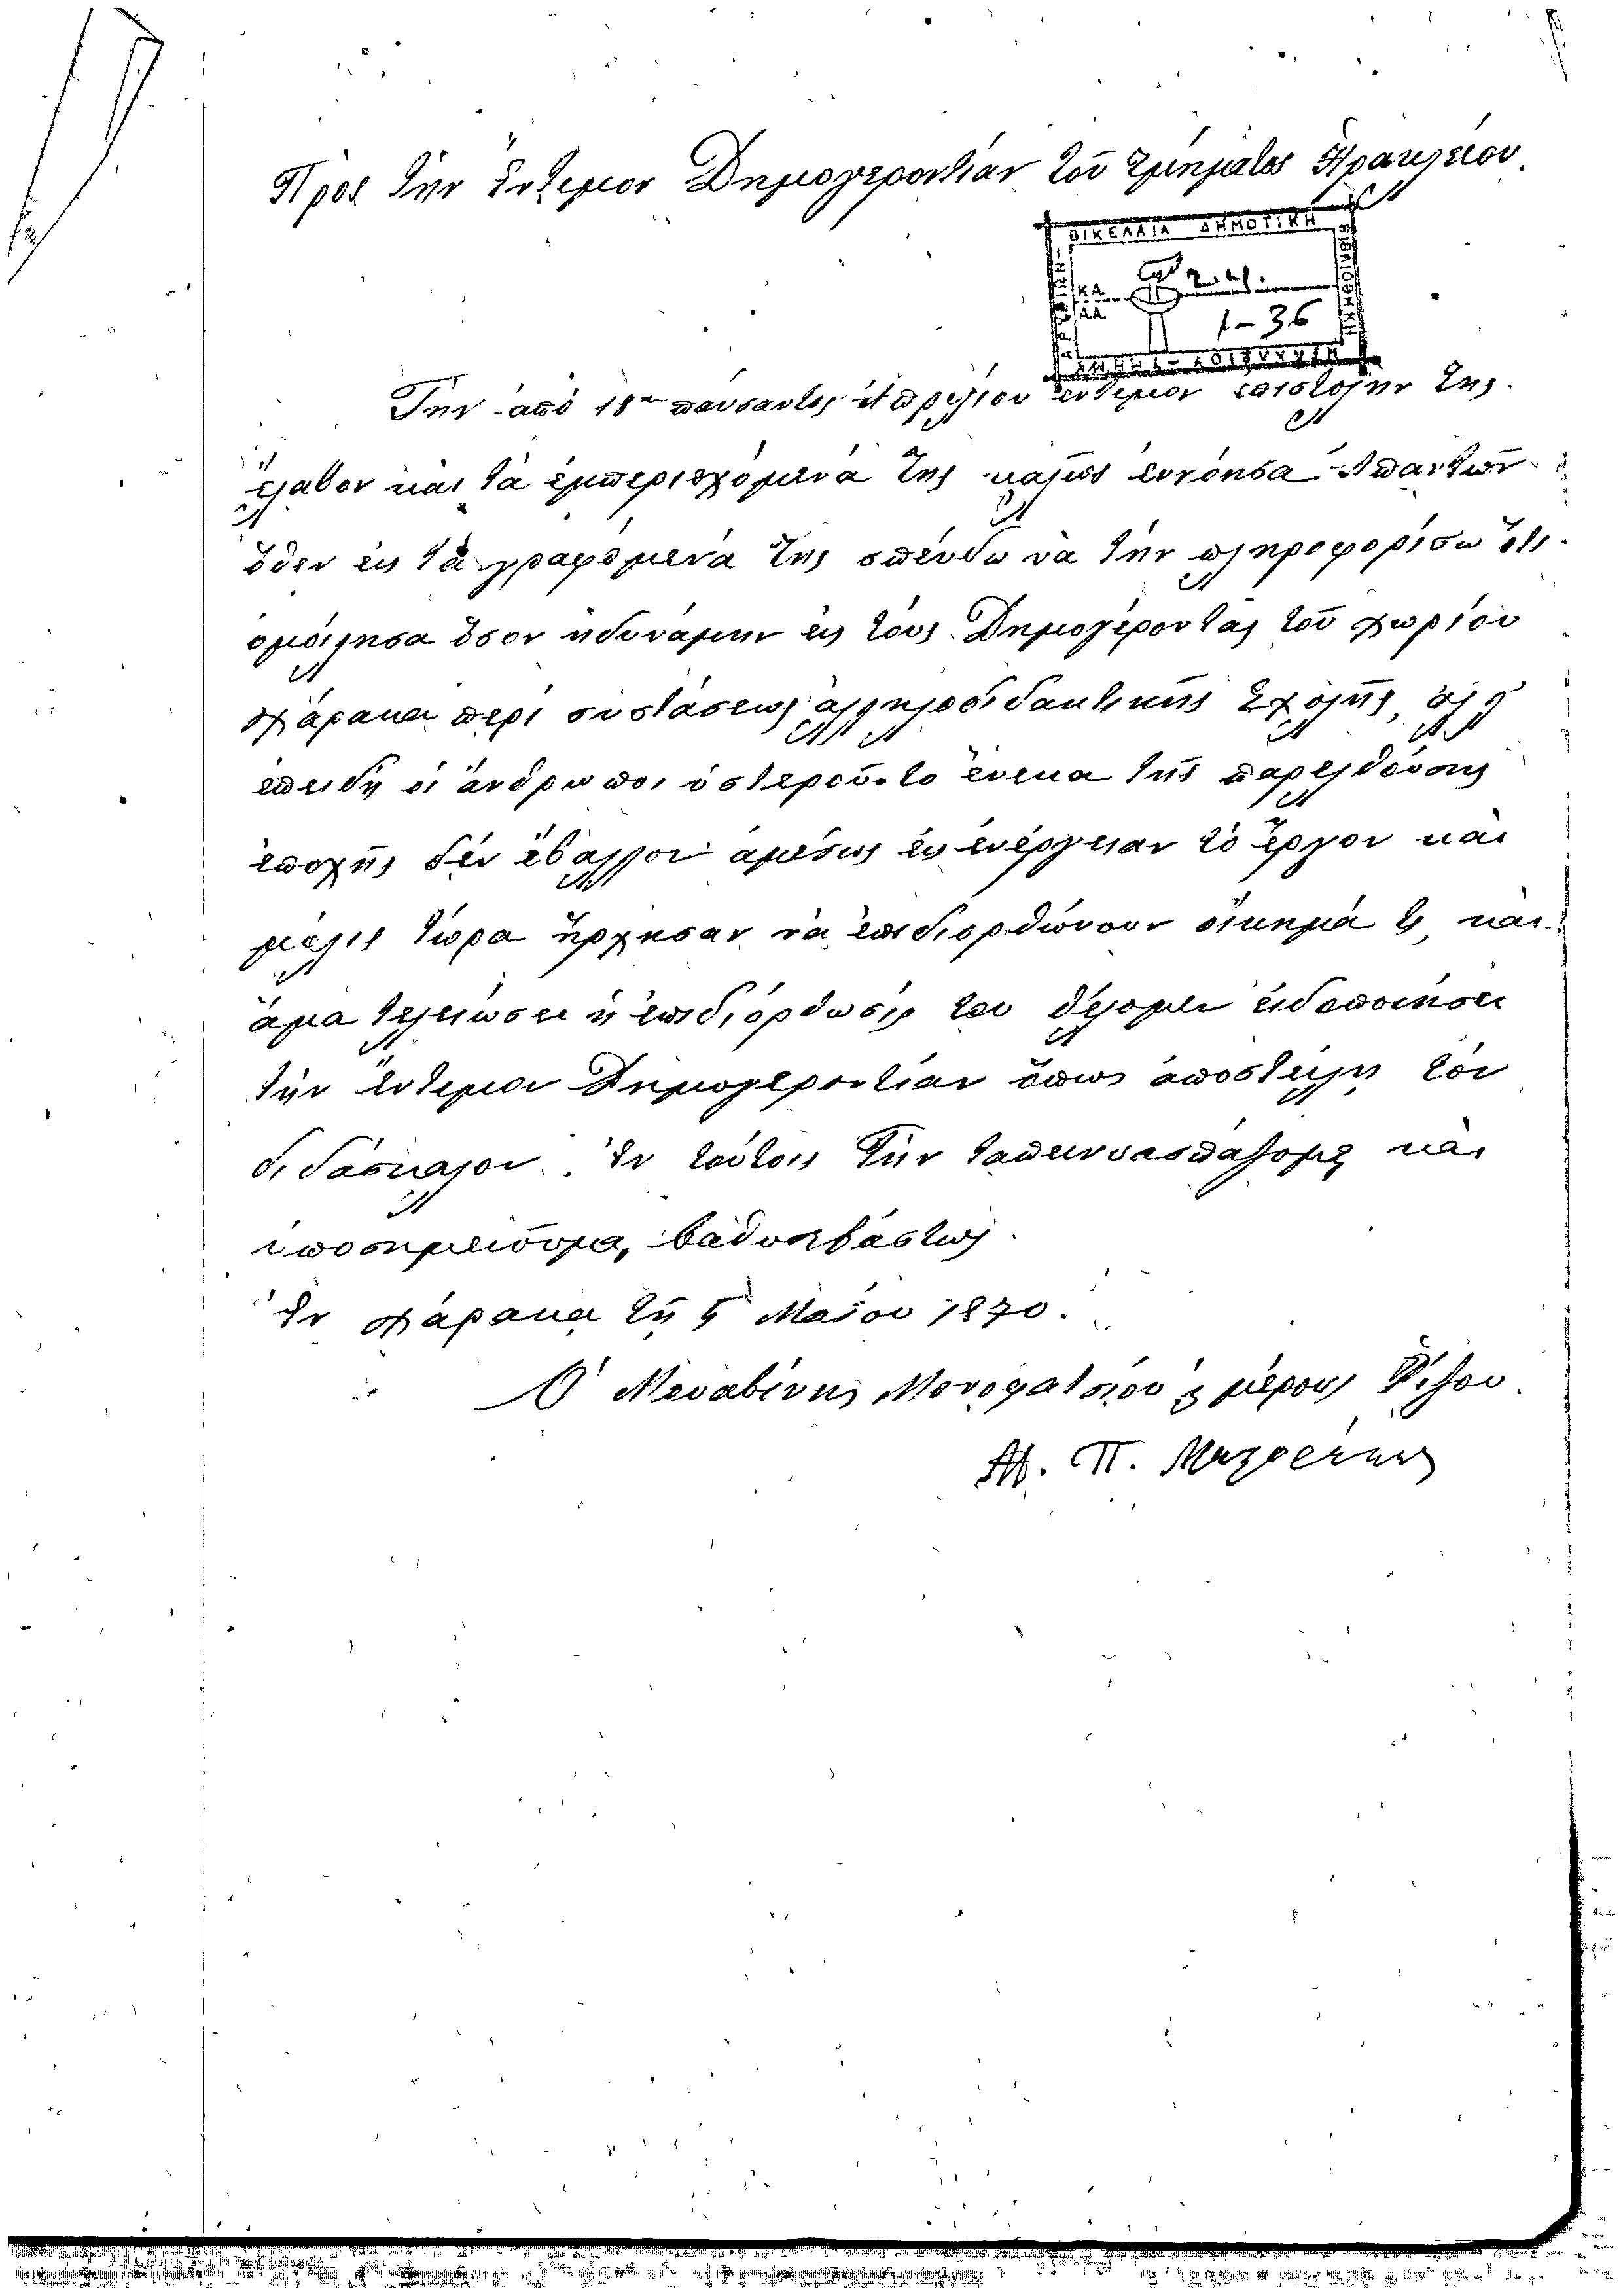 Πρὸς τὴν ἔντιμον Δημογεροντίαν τοῦ τμήματος Ἡρακλείου.
ΒΙΚΕΛΑΙΑ ΔΗΜΟΤΙΚΗ ΒΙΒΛΙΟΘΗΚΗ
ΚΑ 24.
ΑΑ 1-36
Τὴν ἀπὸ 18ην παύσαντος Ἀπριλίου ἔντιμον ἐπιστολήν της
ἔλαβον καὶ τὰ ἐμπεριεχόμενά της καλῶς ἐννόησα. Ἀπαντῶν
ὅθεν εἰς τὰ γραφόμενά της σπεύδω νὰ τὴν πληροφορίσω ὅτι
ομοίλησα ὅσον ἠδυνάμην εἰς τοὺς Δημογέροντας τοῦ χωρίου
Χάρακα περὶ συστάσεως ἀλληλοδιδακτικῆς Σχολῆς, ἀλλ'
ἐπειδὴ οἱ ἄνθρωποι ὑστεροῦντο ἕνεκα τῆς παρελθούσης
ἐποχῆς δὲν ἔβαλλον ἀμέσως εἰς ἐνέργειαν τὸ ἔργον καὶ
μόλις τώρα ἤρχησαν νὰ ἐπιδιορθώνουν οἴκημά τι, καὶ
ἅμα τελειώσει ἡ ἐπιδιόρθωσίς του θέλομεν εἰδοποιήσει
τὴν ἔντιμον Δημογεροντίαν ὅπως ἀποστείλῃ τὸν
διδάσκαλον. Ἐν τούτοις Τὴν ταπεινοασπάζομαι καὶ
ὑποσημειοῦμαι βαθυσεβάστως.
Ἐν Χάρακα τῇ 5 Μαΐου 1870.
Ὁ Μουαβίνης Μονοφατσίου καὶ μέρους Ῥίζου.
Π.